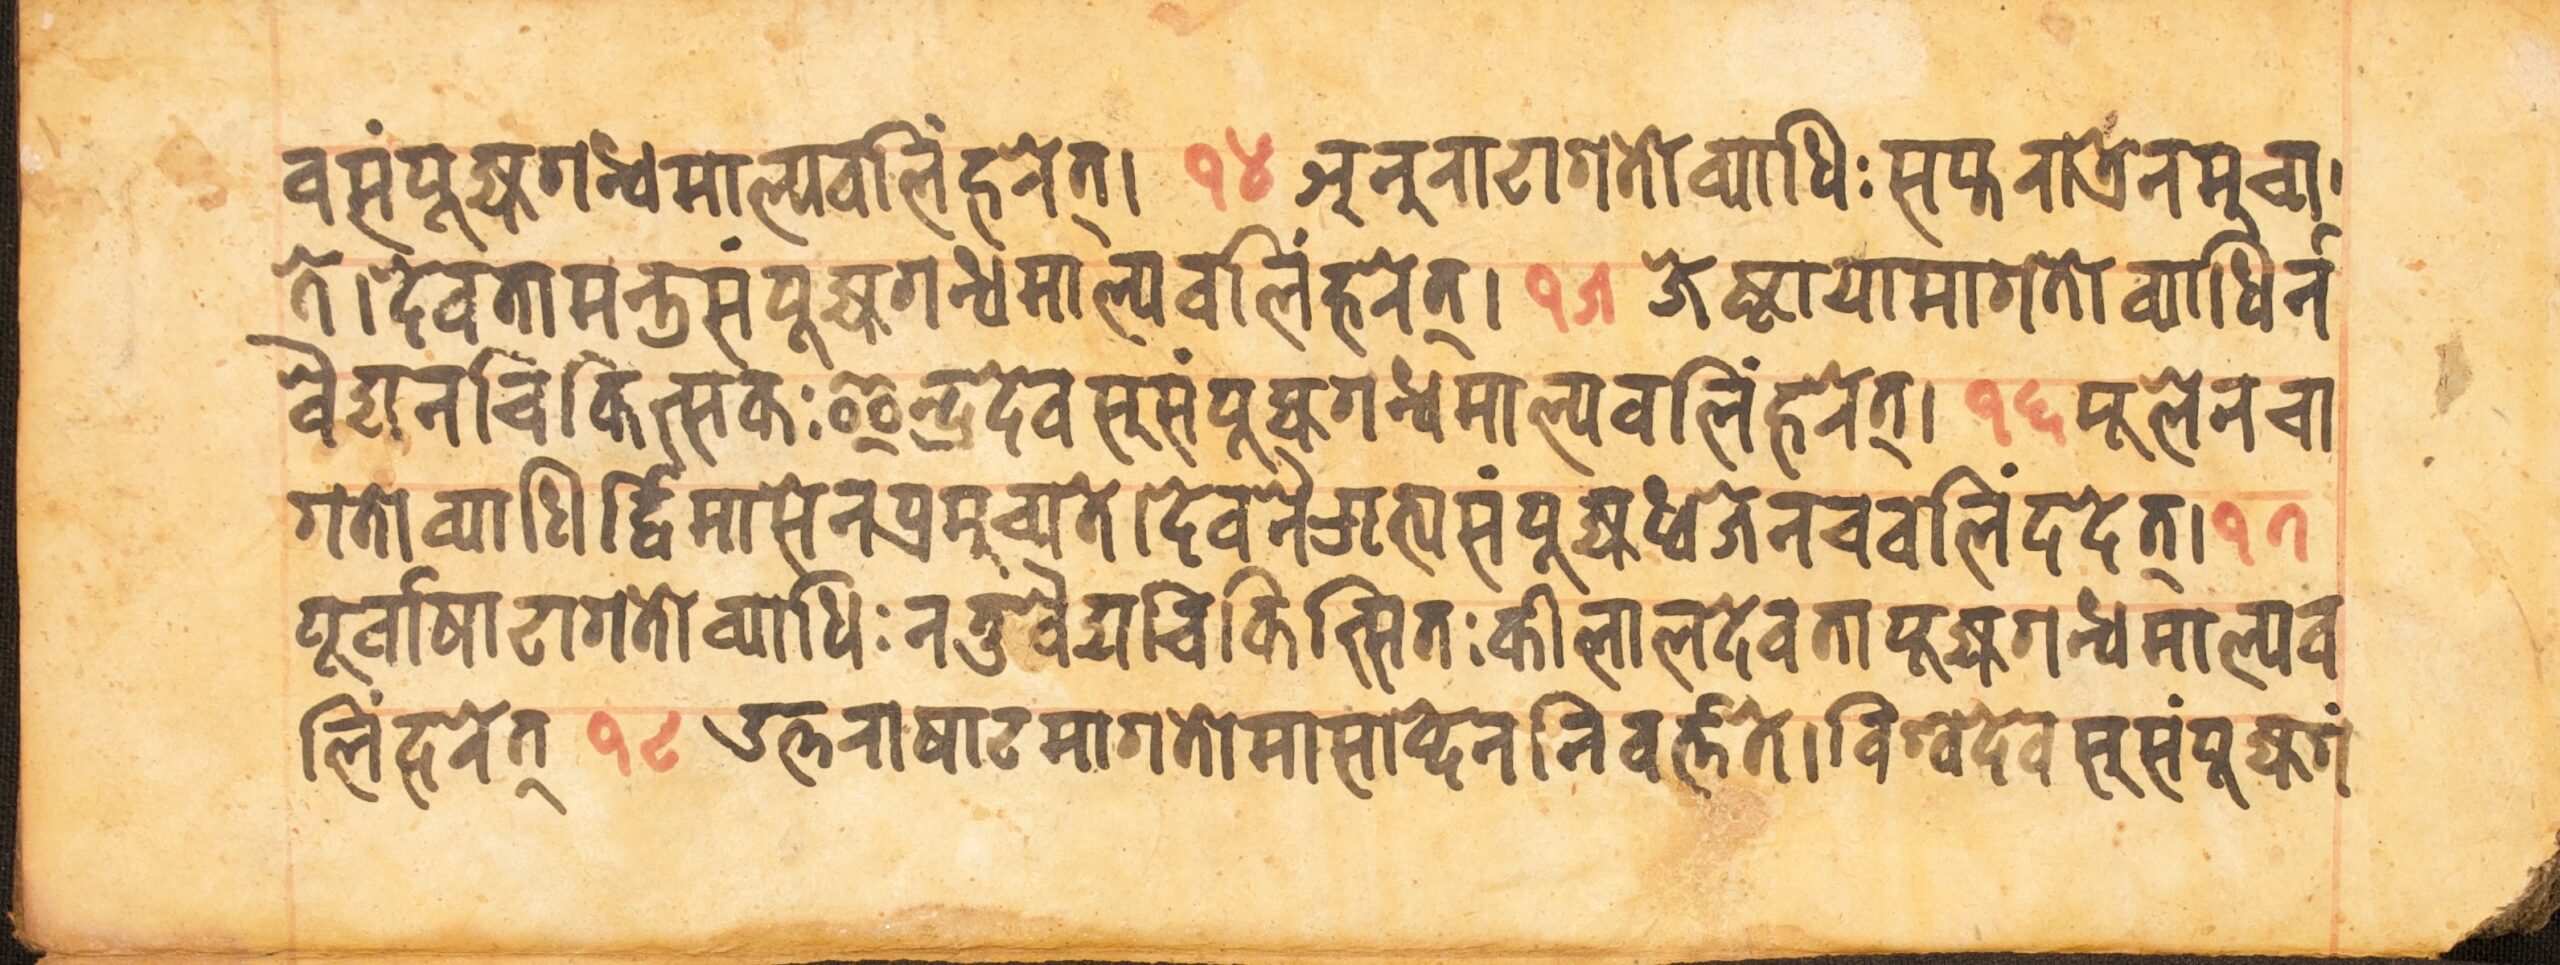 वसंपूज्यगन्धमाल्यवलिंहरेत्। १४ अनुराटागतोव्याधिः सप्तरात्रेनमुच्य।
ते। देवतामन्तुसंपूज्यगन्धमाल्यवलिंहरेत्। १५ जेष्टायामागतोव्याधिर्न
वैद्यनचिकित्सकः इन्द्रदेवसुसंपूज्यगन्धमाल्यवलिंहरेत्। १६ मूलेनचा
गतोव्याधिर्द्विमासेनप्रमुच्यते। देवनैऋत्यसंपूज्यध्वजेनचवलिंददेत्। १७
पूर्वाषाटागतोव्याधिः नतुंवैद्यचिकित्सितः कीलालदेवतापूज्यगन्धमाल्यव
लिंहरेत् १८ उत्तराषाटमागतोमासार्द्धेननिवर्त्तते। विश्वदेवसुसंपूज्यगं